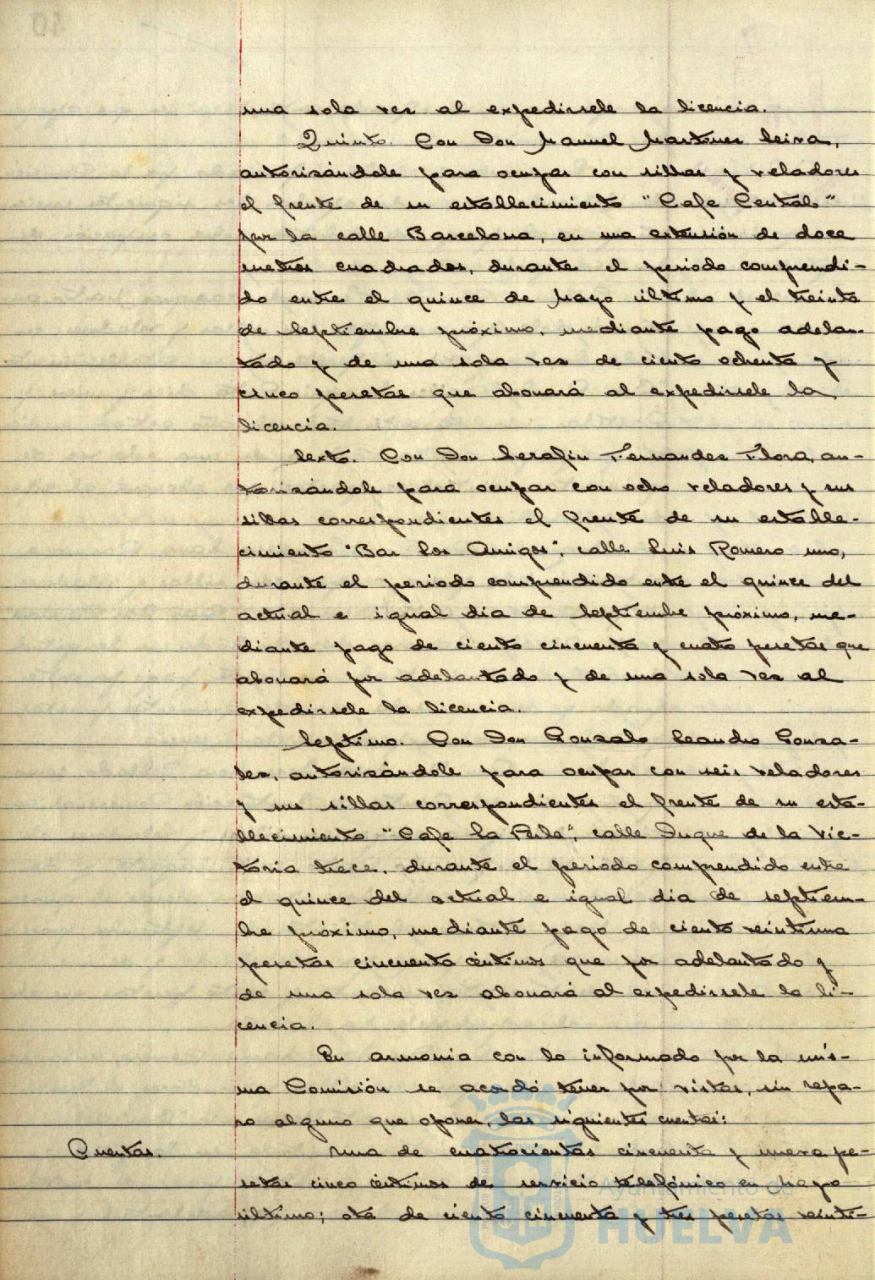 una sola vez al expedirsele la licencia.
Quinto. Con Don Manuel Martinez Leiva,
autorizándole para ocupar con sillas y veladores
el frente de su establecimiento "Cafe Central"
por la calle Barcelona, en una extensión de doce
metros cuadrados, durante el periodo comprendi-
do entre el quince de Mayo último y el treinta
de Septiembre próximo, mediante pago adelan-
tado y de una sola vez de ciento ochenta y
cinco pesetas que abonará al expedirsele la
licencia.
Sexto. Con Don Serafin Fernandez Flora, au-
torizándole para ocupar con ocho veladores y sus
sillas correspondientes el frente de su estable-
cimiento "Bar Los Amigos", calle Luis Romero uno,
durante el periodo comprendido entre el quince del
actual e igual dia de Septiembre próximo, me-
diante pago de ciento cincuenta y cuatro pesetas que
abonará por adelantado y de una sola vez al
expedirsele la licencia.
Septimo. Con Don Gonzalo Leandro Gonza-
lez, autorizándole para ocupar con seis veladores
y sus sillas correspondientes el frente de su esta-
blecimiento "Cafe La Perla", calle Duque de la Vic-
toria trece, durante el periodo comprendido entre
el quince del actual e igual dia de septiem-
bre próximo, mediante pago de ciento veintiuna
pesetas cincuenta céntimos que por adelantado y
de una sola vez abonará al expedirsele la li-
cencia.
En armonia con lo informado por la mis-
ma Comisión se acordó tener por vistas, sin repa-
ro alguno que oponer, las siguientes cuentas:
Cuentas. Una de cuatrocientas cincuenta y nueve pe-
setas cinco céntimos de servicio telefónico en Mayo
último; otra de ciento cincuenta y tres pesetas veinti-
Ayuntamiento de
HUELVA